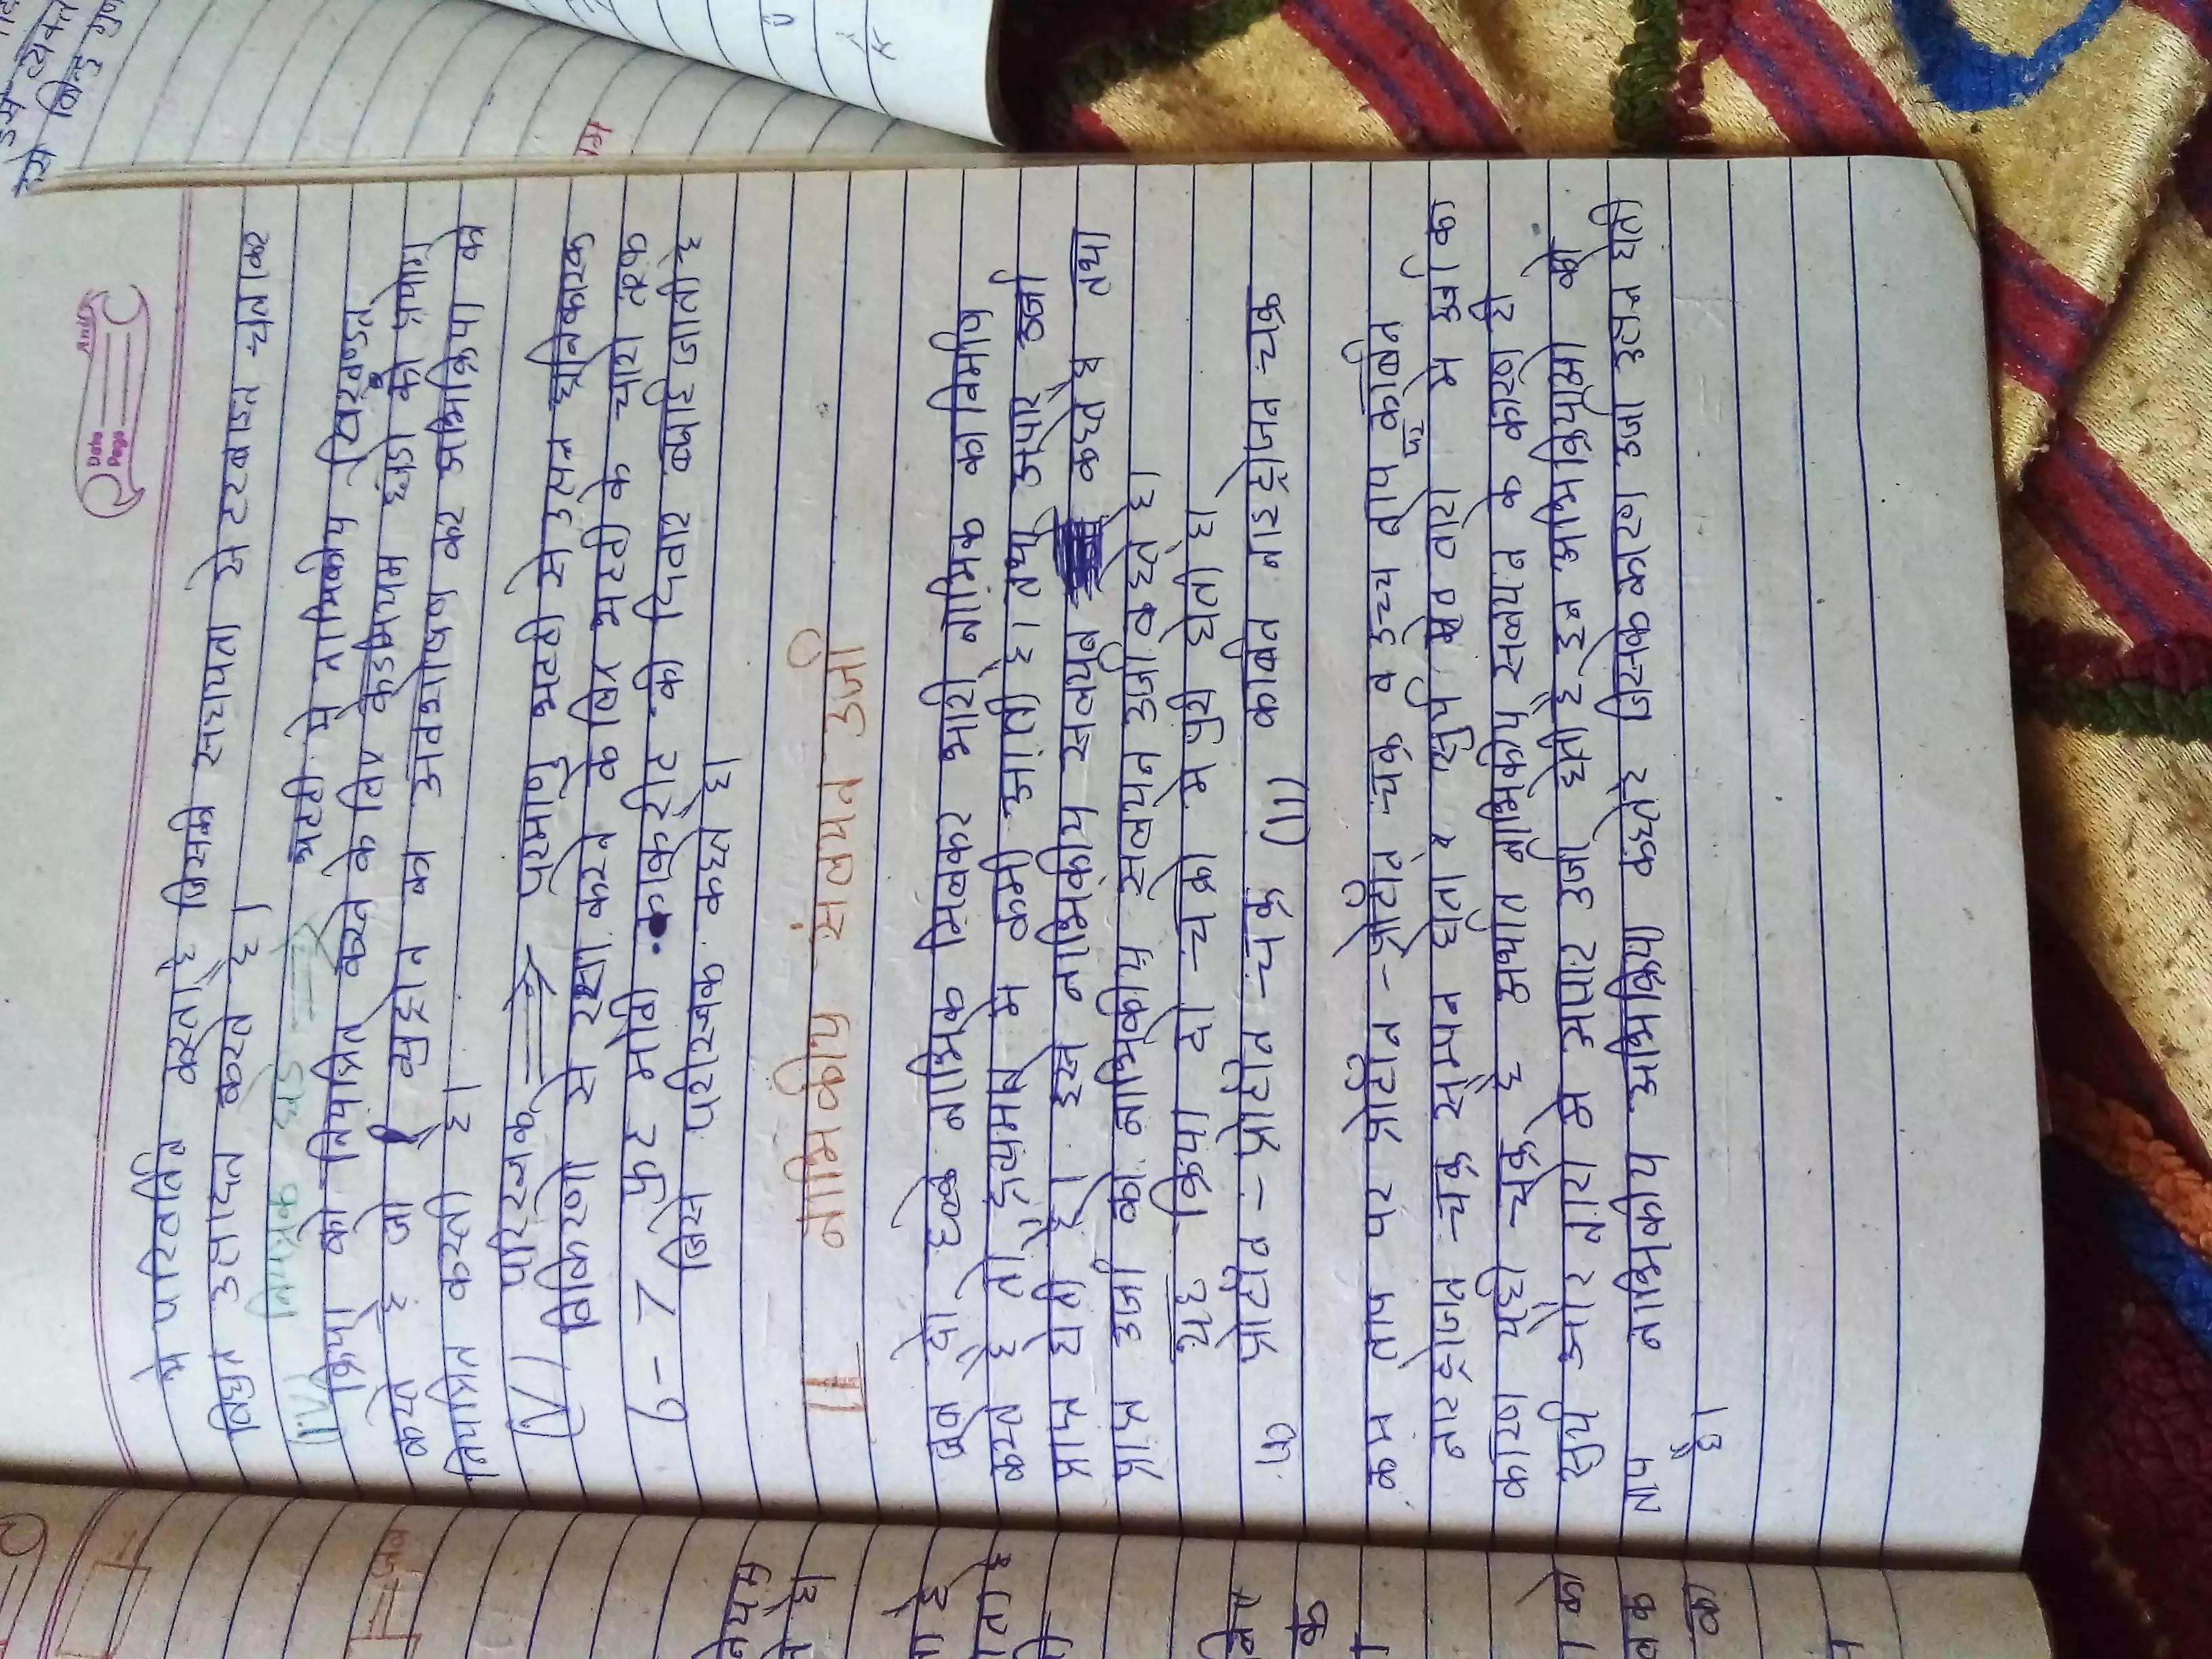 Date
Page
मे परिवर्तित करता है जिसकी सहायता से टरबाइन चलाकर
विद्युत उत्पादन करते है।
(iv) नियंत्रक छड़ ⇒ भट्टी मे नाभिकीय विखण्डन
क्रिया को नियंत्रित करने के लिए कैडमियम छड़ो का प्रयोग
करते है जो न्युट्रान का अवशोषण कर अभिक्रिया को
नियंत्रित करती है।
(V) परिरक्षक ⇒ परमाणु भट्टी से उत्पन्न हानिकारक
विकिरणो से रक्षा करने के लिए भट्टी के चारो तरफ
6-7 फुट मोटी कांकरीट की दिवार बनाई जाती है
जिसे परीरक्षक कहते है।
11 नाभिकीय संलयन उर्जा
जब दो हल्के नाभिक मिलकर भारी नाभिक का निर्माण
करते है तो द्रव्यमान मे कमी आती है। तथा अपार उर्जा
प्राप्त होती है। इसे नाभिकीय संलयन कहते है तथा
प्राप्त उर्जा को नाभिकीय संलयन उर्जा कहते है।
यह क्रिया दो चक्रो मे पुरी होती है।
प्रोटॉन - प्रोटॉन चक्र (11) कार्बन नाइट्रोजन चक्र
कम ताप पर प्रोटॉन - प्रोटॉन चक्र व उच्च ताप पर कार्बन
नाइट्रोजन चक्र सम्पन होता है सुर्य तारो मे उर्जा का
कारण यही चक्र है अर्थात नाभिकीय संलयन के कारण ही
सुर्य और तारो मे अपार उर्जा होती है इन अभिक्रियाओ को
ताप नाभिकीय अभिक्रिया कहते जिसके कारण उर्जा उत्पन्न होती
है।